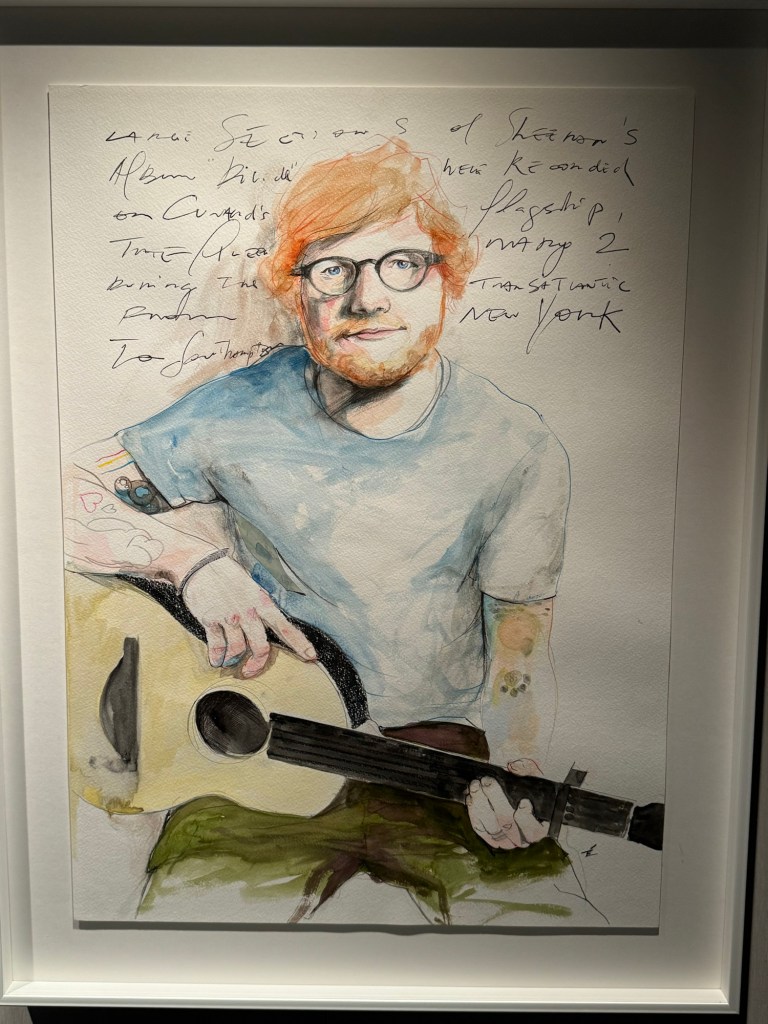 LARGE SECTIONS of SHEERAN'S
Album "Divide" were Recorded
on CUNARD'S flagship,
THE QUEEN MARY 2
During The TRANSATLANTIC
From NEW YORK
To Southampton